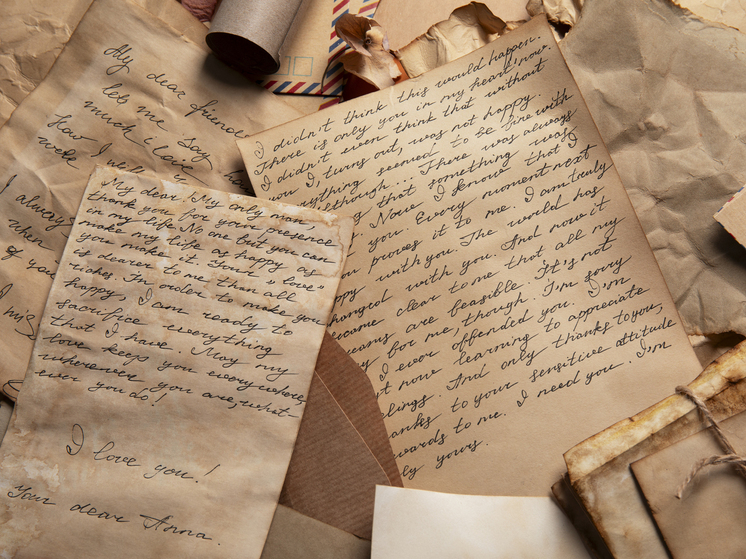 My dear friend
let me say h
much i love
how I will
well
I always
when
of you
I miss
My dear. My only man,
thank you for your presence
in my life No one but you can
make my life as happy as
you make it. Your "love"
is dearer to me than all
riches. In order to make you
happy, I am ready to
sacrifice everything
that I have. May my
love keep you everywhere,
wherever you are, what-
ever you do!
I love you!
Your dear Anna.
I didn't think this would happen.
There is only you in my heart, now.
I didn't even think that without
you I, turns out, was not happy.
erything seemed to be fine with
although... There was always
ng that something was
Now I know that I
you. Every moment next
proves it to me. I am truly
ppy with you The world has
hanged with you. And now it
ecame clear to me that all my
reams are feasible. It's not
y for me, though. I'm sorry
I ever offended you. I'm
t now learning to appreciate
lings. And only thanks to you,
anks to your sensitive attitude
wards to me. I need you. I'm
ly yours.